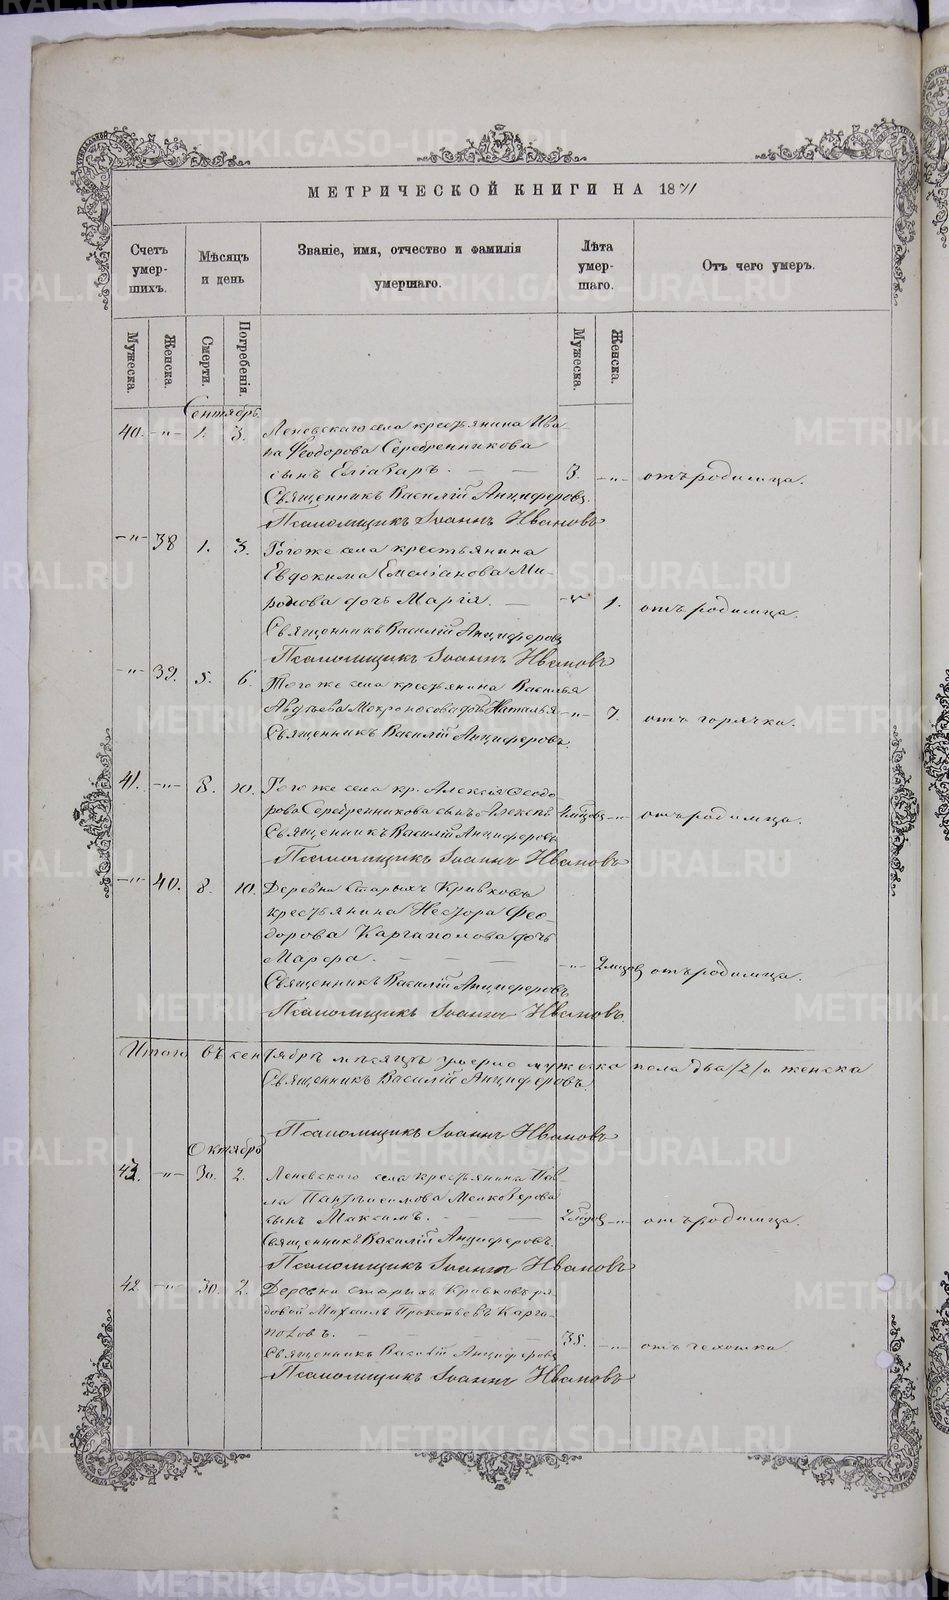 МЕТРИЧЕСКОЙ КНИГИ НА 1871
Счетъ умер- шихъ.
Мѣсяцъ и день
Званіе, имя, отчество и фамилія умершаго.
Лѣта умер- шаго.
Отъ чего умеръ.
Мужеска.
Женска.
Смерти.
Погребенія.
Мужеска.
Женска.
Сентябрь.
40. -"- 1. 3. Леневскаго села крестьянина Ива-
на Феодорова Серебренникова
сынъ Еліазаръ. — — 3. -"- отъ родимца.
Священникъ Василій Анциферовъ.
Псаломщикъ Іоаннъ Ивановъ
-"- 38 1. 3. Тогоже села крестьянина
Евдокима Емеліанова Ми-
ронова дочь Марія. — -"- 1. отъ родимца.
Священникъ Василій Анциферовъ
Псаломщикъ Іоаннъ Ивановъ
-"- 39. 5. 6 Тогоже села крестьянина Василья
Авдѣева Мокроносова дочь Наталья -"- 7. отъ горячки.
Священникъ Василій Анциферовъ.
41. -"- 8. 10. Тогоже села кр. Алексія Феодо-
рова Серебренникова сынъ Алексѣй -"- отъ родимца.
Священникъ Василій Анциферовъ
Псаломщикъ Іоаннъ Ивановъ
-"- 40. 8. 10. Деревни Старыхъ Кривковъ
крестьянина Нестора Фео-
дорова Каргаполова дочь
— — — -"- 2 мѣсяц отъ родимца.
Священникъ Василій Анциферовъ.
Псаломщикъ Іоаннъ Ивановъ.
Итого въ сентябрѣ мѣсяцѣ умерло мужеска пола два /2/ и женска
Священникъ Василій Анциферовъ.
Псаломщикъ Іоаннъ Ивановъ
Октябрь
-"- 30. 2. Леневскаго села крестьянина Пав-
ла Мелкозерова
сынъ Максимъ. — — -"- отъ родимца.
Священникъ Василій Анциферовъ.
Псаломщикъ Іоаннъ Ивановъ
42. -"- 30. 2. Деревни Старыхъ Кривковъ ря-
довой Михаилъ Прокопьевъ Карга-
половъ. — — — 38. -"- отъ чехотки.
Священникъ Василій Анциферовъ
Псаломщикъ Іоаннъ Ивановъ
METRIKI.GASO-URAL.RU